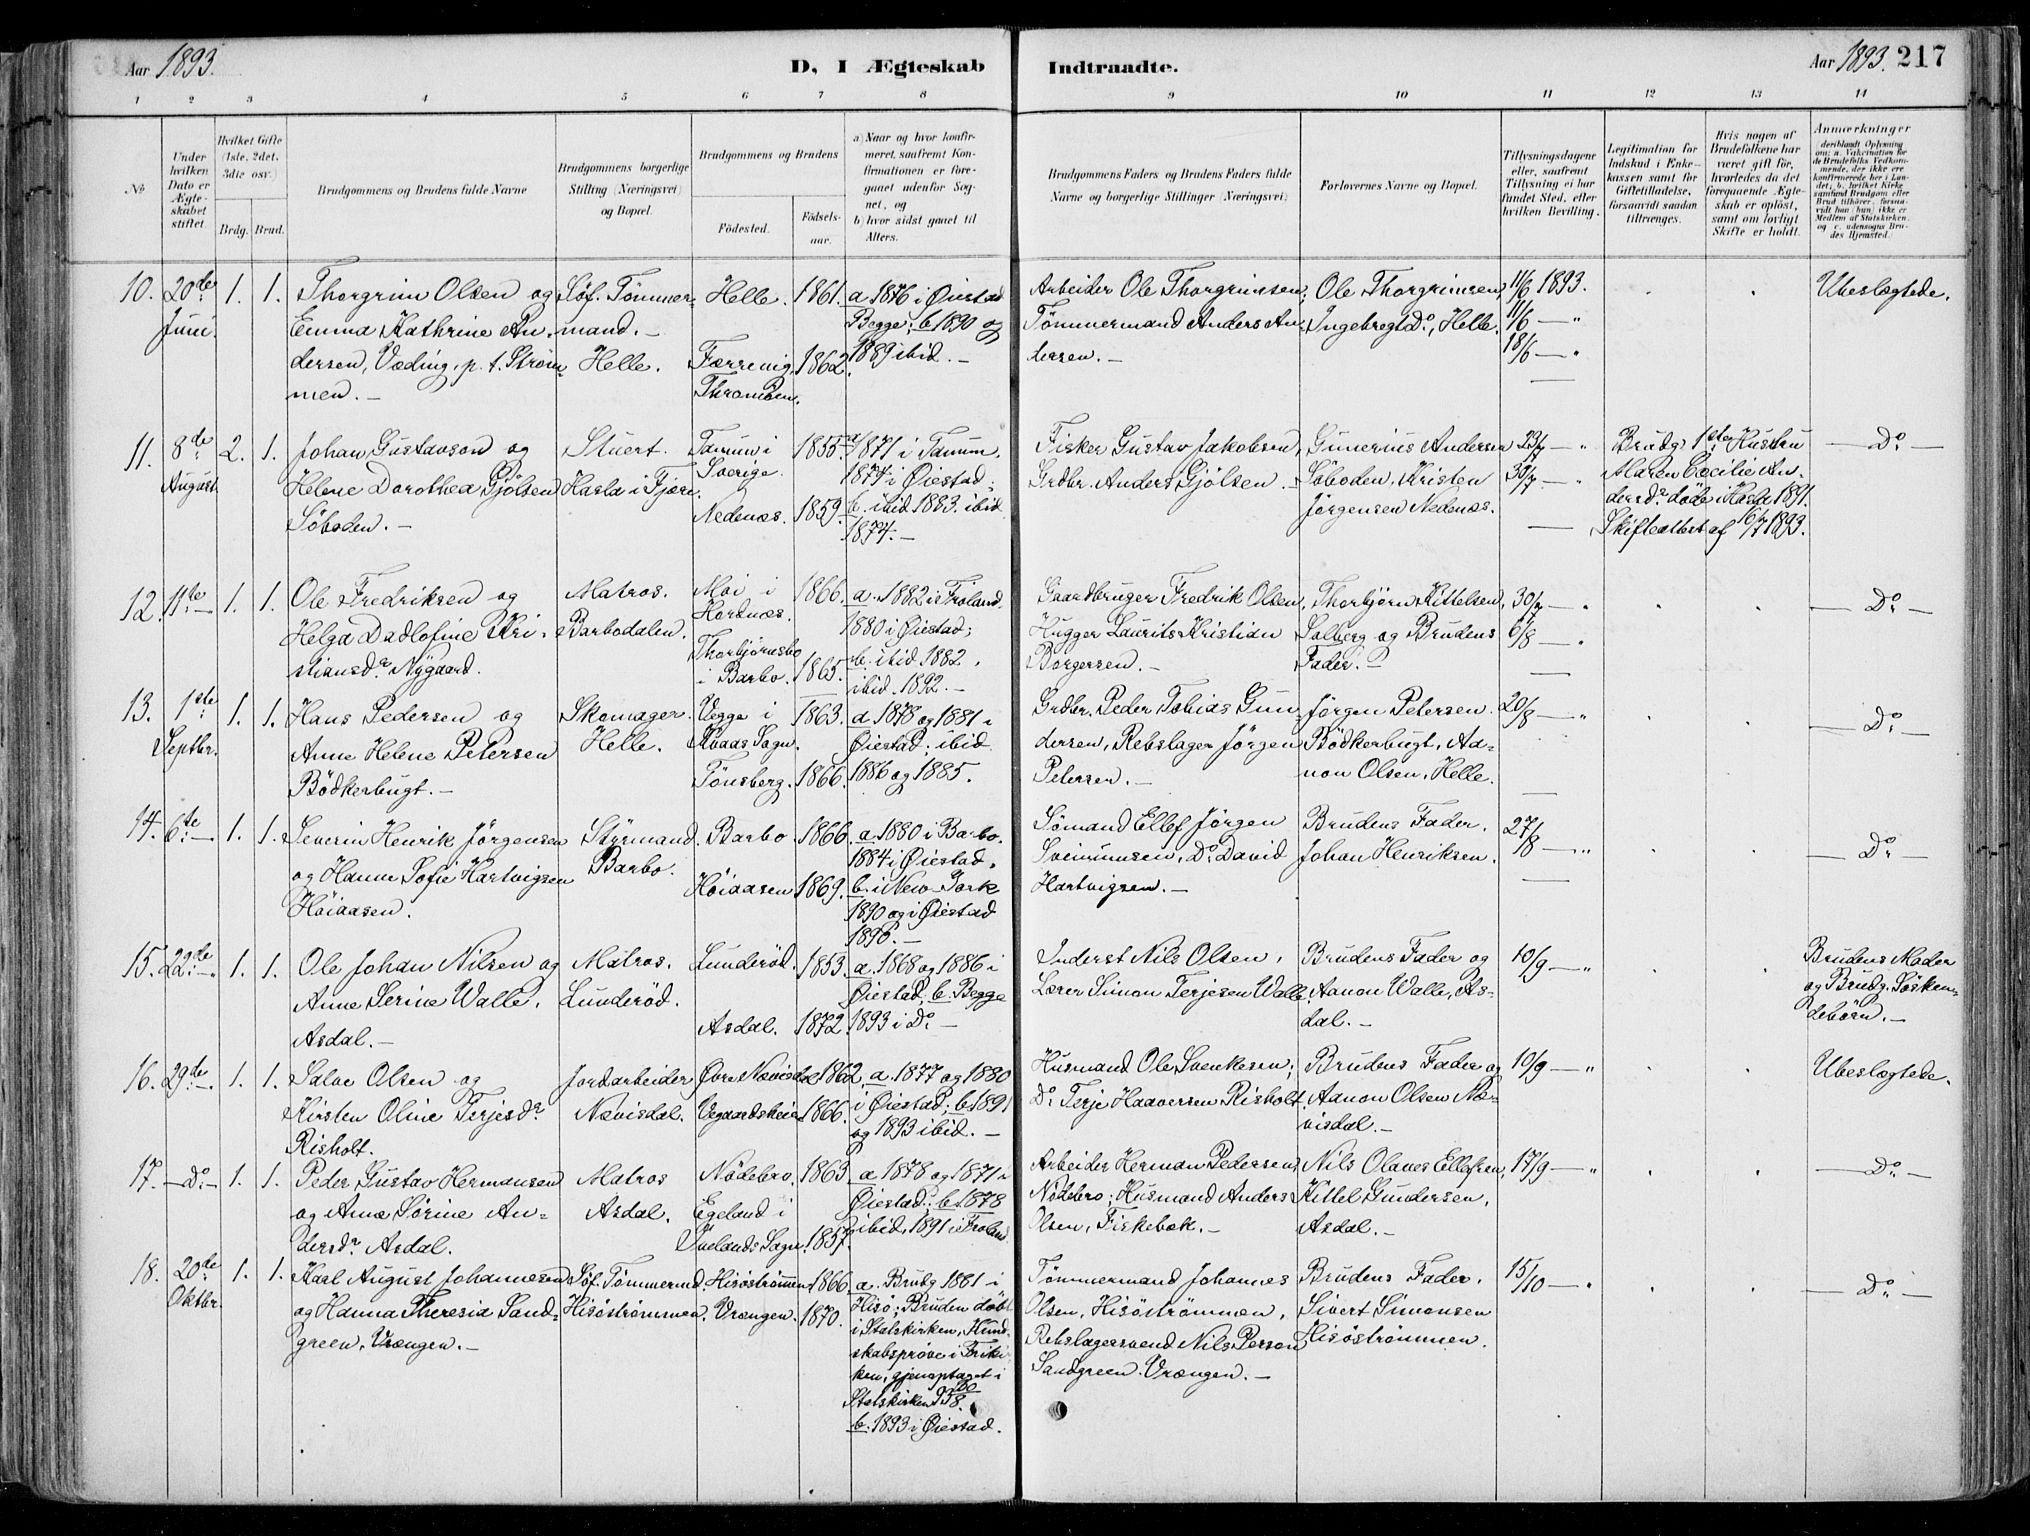 Aar 1893.
D, I Ægteskab
Indtraadte.
Aar 1893. 217
1 2 3 4 5 6 7 8 9 10 11 12 13 14
No
Under hvilken Dato er Ægteskabet stiftet.
Hvilket Gifte (1ste, 2det, 3die osv.)
Brdg. Brud.
Brudgommens og Brudens fulde Navne
Brudgommens borgerlige Stilling (Næringsvei) og Bopæl.
Brudgommens og Brudens
Födested.
Födsels-aar.
a) Naar og hvor konfirmeret, saafremt Konfirmationen er foregaaet udenfor Sognet, og
b) hvor sidst gaaet til Alters.
Brudgommens Faders og Brudens Faders fulde Navne og borgerlige Stillinger (Næringsvei)
Forlovernes Navne og Bopæl.
Tillysningsdagene eller, saafremt Tillysning ei har fundet Sted, efter hvilken Bevilling.
Legitimation for Indskud i Enkekassen samt for Giftetilladelse, forsaavidt saadan tiltrænges.
Hvis nogen af Brudefolkene har været gift før, hvorledes da det foregaaende Ægteskab er opløst, samt om lovligt Skifte er holdt.
Anmærkninger
10. 20de Juni. 1. 1.
Thorgrim Olsen og
Emma Kathrine An-
dersen, Væding, p. t. Strøm-
men. —
Søf. Tömmer-
mand. —
Helle.
Helle. 1861.
Færevig, Thromöen. 1862.
a 1876 i Øiestad
Begge; b 1890 og
1889 ibid. —
Arbeider Ole Thorgrimsen;
Tømmermand Anders An-
dersen. —
Ole Thorgrimsen,
Ingebregt Do, Helle.
11/6 1893.
11/6 — "
18/6 — "
Ubeslægtede.
11. 8de August 2. 1.
Johan Gustavson og
Helene Dorothea Gjölsen
Söboden. —
Stuert.
Hasla i Fjære.
Tanum i Sverige. 1855.
Nedenæs. 1859.
a 1871 i Tanum.
1874 i Øiestad;
b. ibid 1883. ibid
1874. —
Fisker Gustav Jakobsen,
Grdbr. Anders Gjölsen. —
Gunerius Andersen
Söboden. Kristen
Jörgensen Nedenæs.
23/7 — "
30/7 — "
Brudg. 1ste Hustru
Maren Cecilie An-
dersdr döde i Hasla 1891.
Skifteattest af 16/7 1893.
— Do —
12. 11te — 1. 1.
Ole Fredriksen og
Helga Dadlofine Kri-
stiansdr Nygaard.
Matros.
Barbodalen.
Moi i Hordnæs. 1866.
Thorbjörnsbo i Barbo. 1865.
a. 1882 i Froland.
1880 i Øiestad;
b. ibid 1882.
ibid. 1892. —
Gaardbruger Fredrik Olsen,
Hugger Laurits Kristian
Borgersen. —
Thorbjörn Kittelsen,
Solberg og Brudens
Fader. —
30/7 — "
6/8 — "
— Do —
13. 1ste Septbr. 1. 1.
Hans Pedersen og
Anne Helene Petersen
Bödkerbugt. —
Skomager.
Helle.
Vegge i Kvaas Sogn. 1863.
Tönsberg. 1866.
a 1878 og 1881 i
Øiestad; ibid
1886 og 1885.
Grdbr. Peder Tobias Gun-
dersen, Rebslager Jörgen
Petersen. —
Jörgen Petersen.
Bödkerbugt, Aa-
non Olsen, Helle.
20/8 — "
— Do —
14. 6te — 1. 1.
Severin Henrik Jörgensen
og Hanne Sofie Hartvigsen
Höiaasen.
Styrmand.
Barbo.
Barbo. 1866.
Höiaasen 1869.
a. 1880 i Barbo.
1884 i Øiestad.
b. i New-York
1890 og i Øiestad
1893. —
Sömand Ellef Jörgen
Sveinunsen, Do David
Hartvigsen. —
Brudens Fader.
Johan Henriksen.
27/8 — "
— Do —
15. 22de — 1. 1.
Ole Johan Nilsen og
Anne Serine Walle.
Asdal. —
Matros.
Lunderöd.
Lunderöd. 1853.
Asdal. 1872.
a. 1868 og 1886 i
Øiestad; b. Begge
1893 i Do —
Inderst Nils Olsen,
Lærer Simon Terjesen Walle.
Brudens Fader og
Aanon Walle, As-
dal. —
10/9 — "
Brudens Moder
og Brudg. Sösken-
debörn. —
16. 29de — 1. 1.
Salve Olsen og
Kirsten Oline Terjesdr
Risholt.
Jordarbeider
Nævisdal.
Øvre Nævisdal 1862.
Vegaardsheien 1866.
a. 1877 og 1880
i Øiestad; b. 1891
og 1893 ibid. —
Husmand Ole Svenkesen;
Do Terje Haaversen Risholt.
Brudens Fader og
Aanon Olsen Næ-
visdal. —
10/9 — "
Ubeslægtede.
17. — Do — 1. 1.
Peder Gustav Hermansen
og Anne Sörine An-
dersdr Asdal.
Matros
Asdal.
Nödebro. 1863
Egeland i Ivelands Sogn. 1857.
a 1878 og 1871 i
Øiestad; b. 1878
ibid, 1891 i Froland
Arbeider Herman Pedersen,
Nödebro; Husmand Anders
Olsen, Fiskebæk. —
Nils Olaves Ellefsen,
Kittel Gundersen,
Asdal. —
17/9 — "
— Do —
18. 20de Oktbr. 1. 1.
Karl August Johannesen
og Hanna Theresia Sand-
green, Vrængen. —
Søf. Tömmermd.
Hisöströmmen.
Hisöströmmen 1866
Vrængen. 1870.
a. Brudg 1861 i
Hisö; Bruden döbt
i Statskirken, Kund-
skabspröve i Friki
ken, gjenoptaget i
Statskirken
b. 1893 i Øiestad.
Tömmermand Johannes
Olsen, Hisöströmmen,
Rebslagersvend Nils Person
Sandgreen. Vrængen. —
Brudens Fader.
Sivert Simonsen
Hisöströmmen.
15/10 — "
— Do —